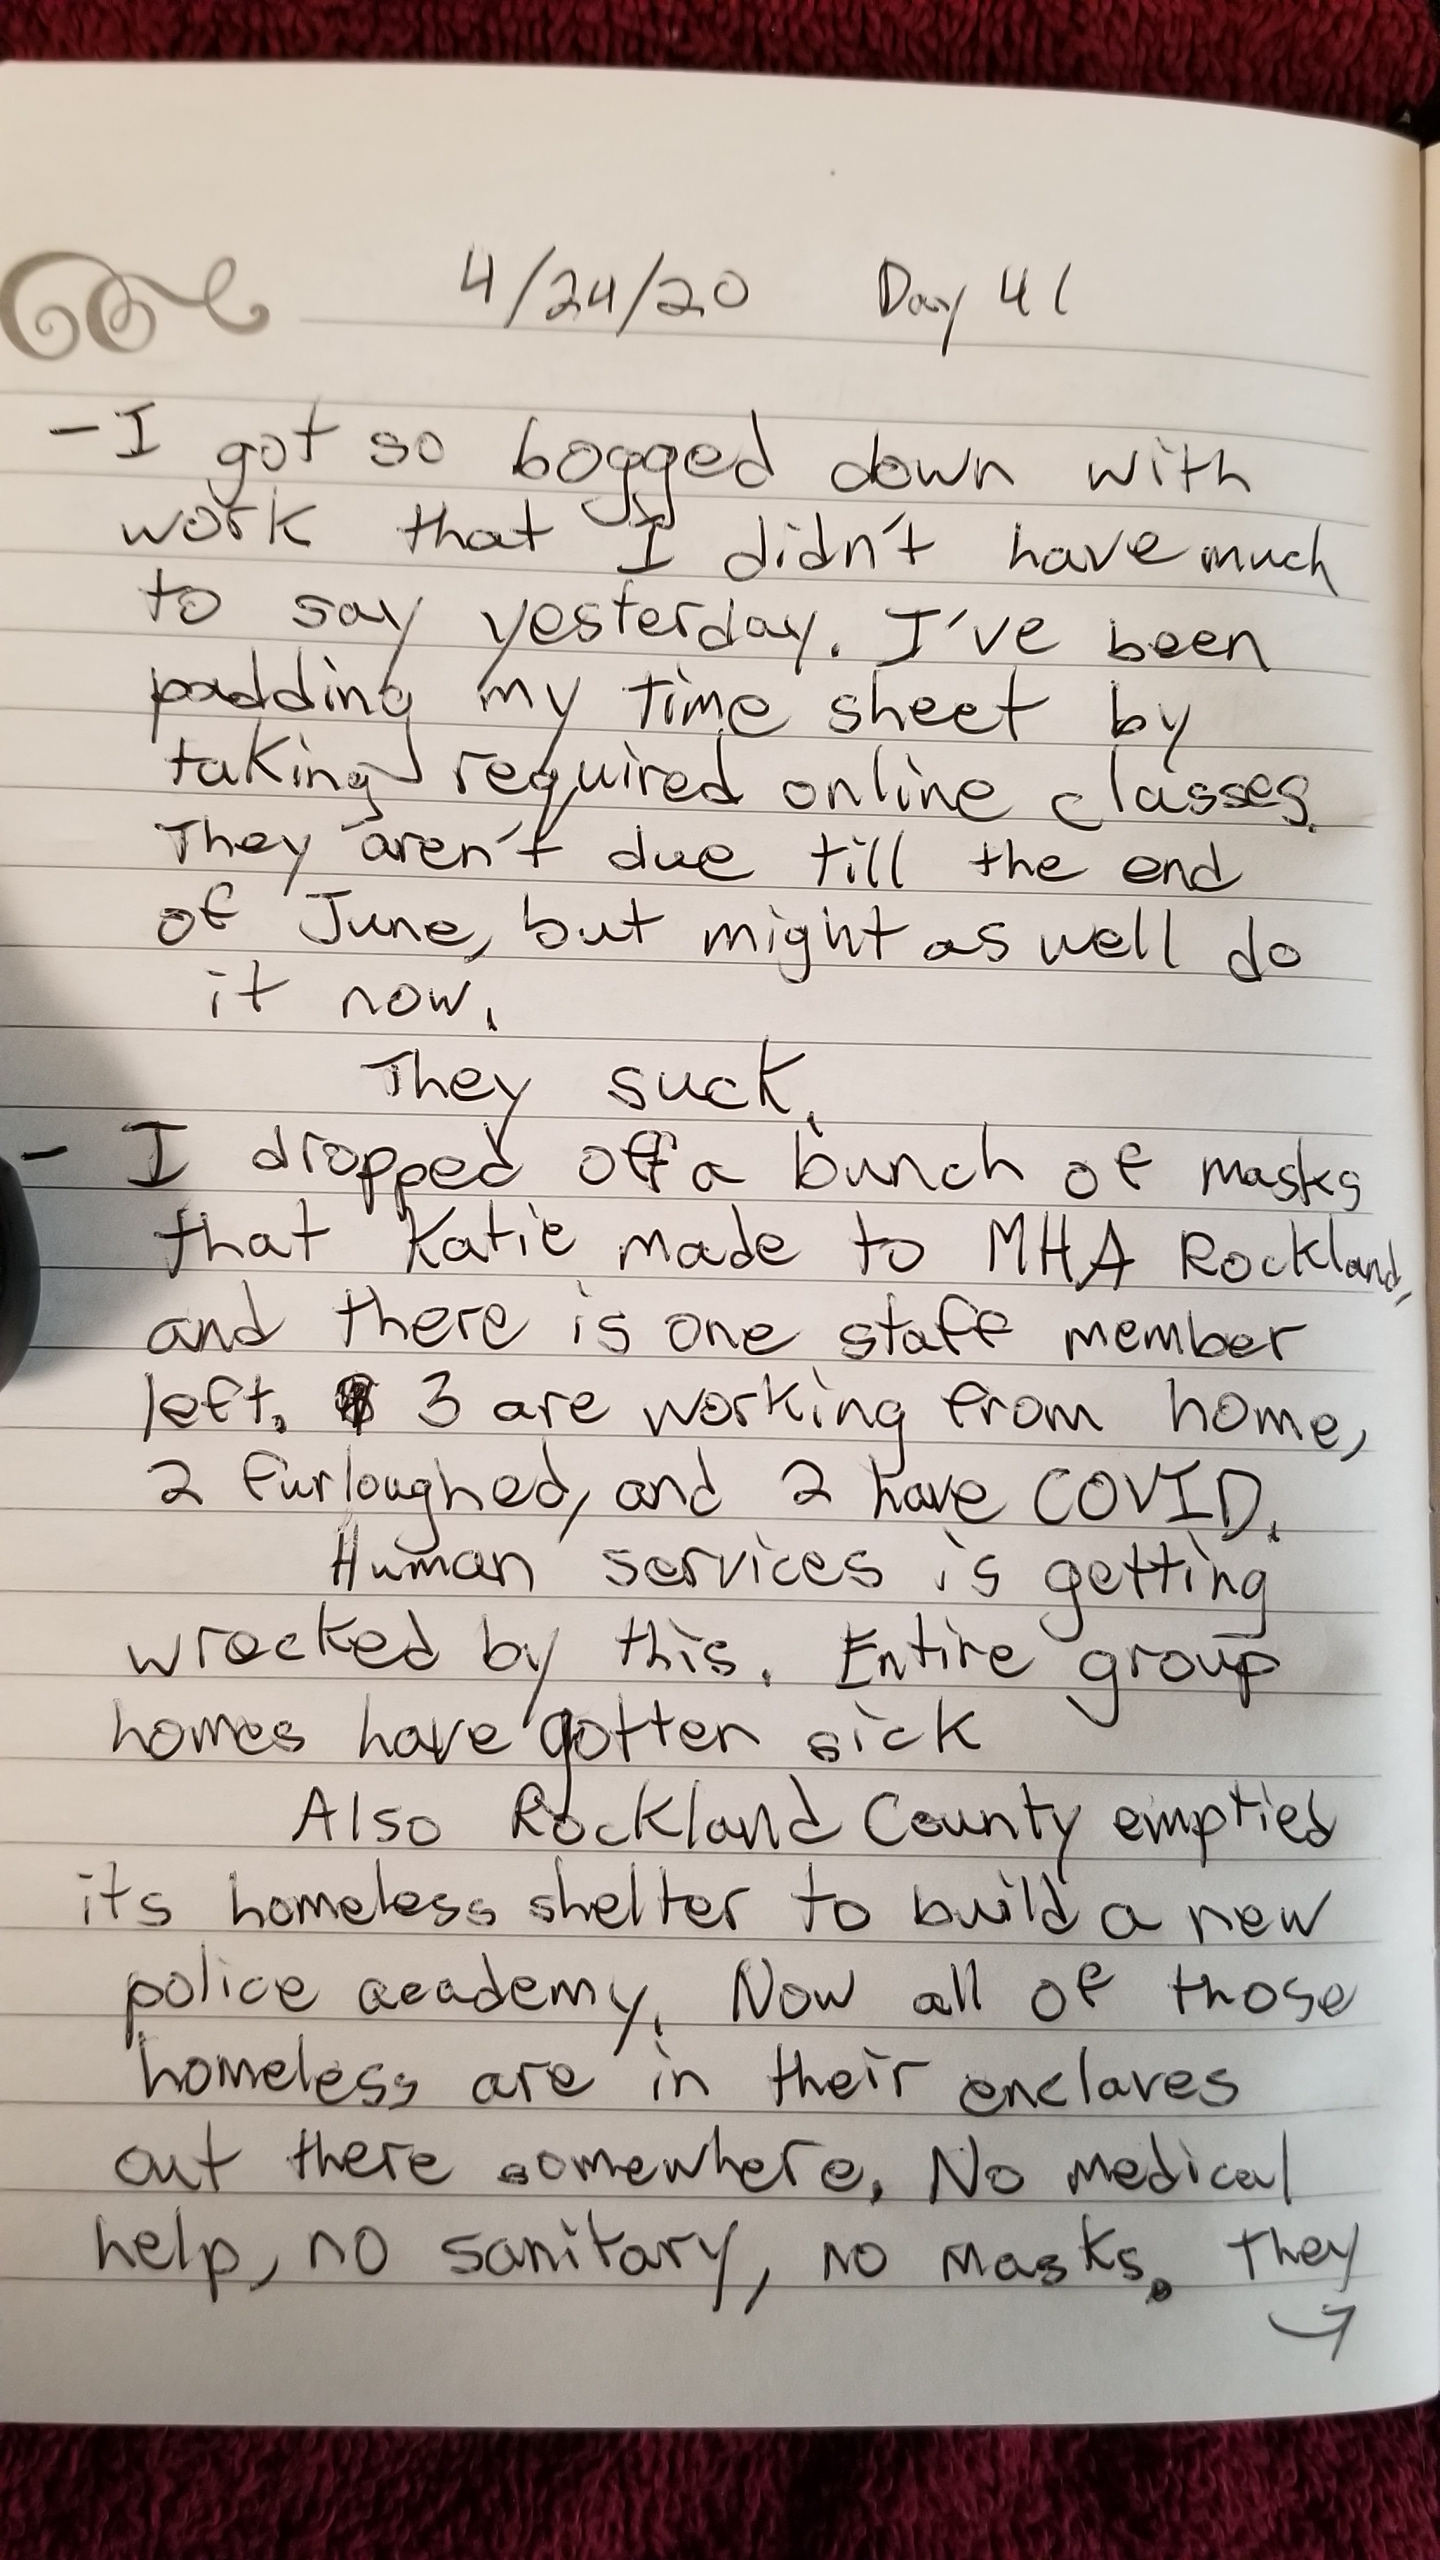 4/24/20 Day 41
- I got so bogged down with
work that I didn't have much
to say yesterday. I've been
padding my time sheet by
taking required online classes.
They aren't due till the end
of June, but might as well do
it now.
They suck.
- I dropped off a bunch of masks
that Katie made to MHA Rockland,
and there is one staff member
left. 3 are working from home,
2 furloughed, and 2 have COVID.
Human services is getting
wrecked by this. Entire group
homes have gotten sick
Also Rockland County emptied
its homeless shelter to build a new
police academy. Now all of those
homeless are in their enclaves
out there somewhere. No medical
help, no sanitary, no masks. They
→